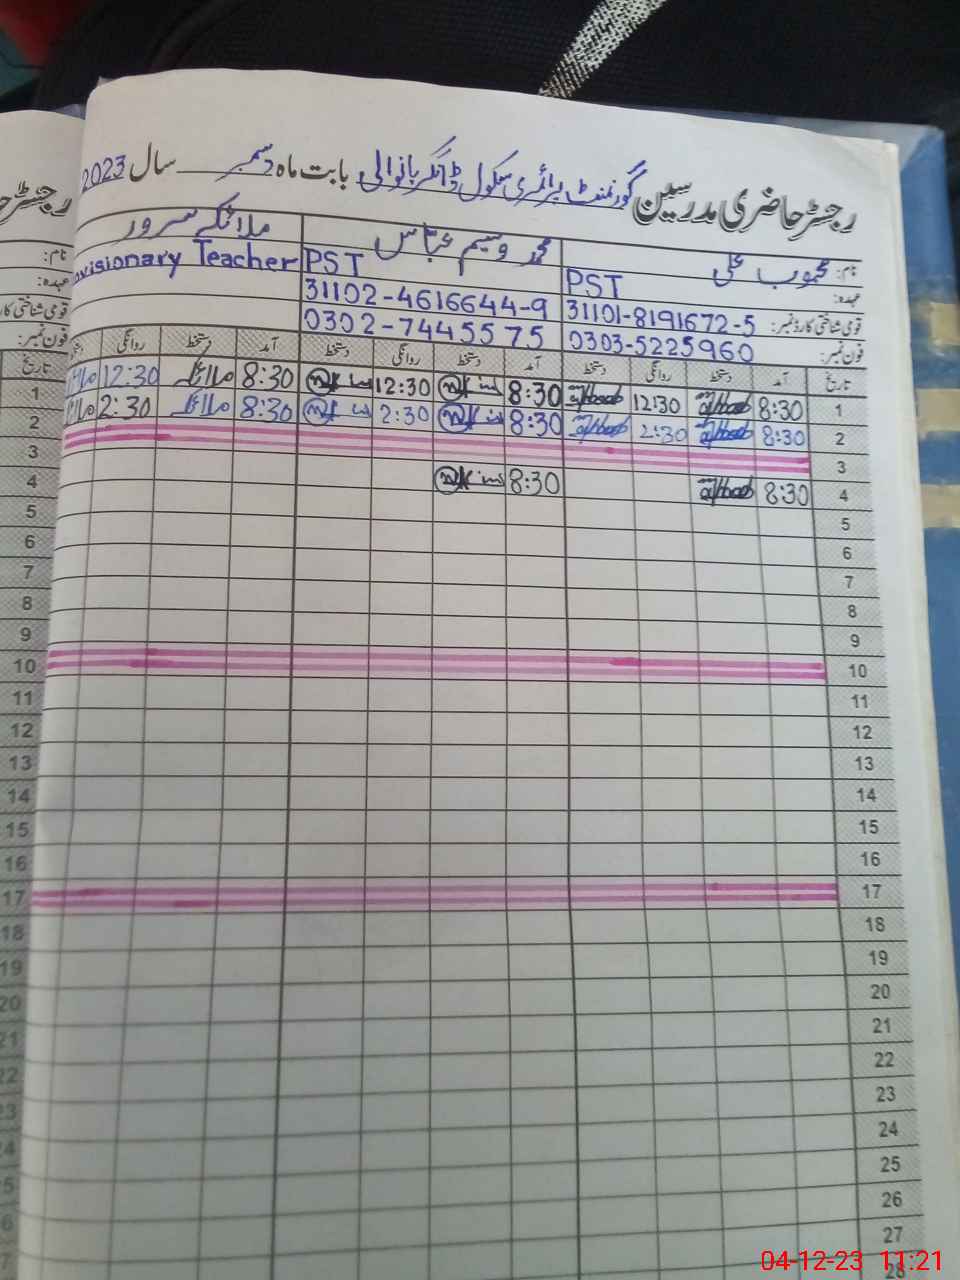 رجسٹر حاضری مدرسین گورنمنٹ پرائمری سکول ڈانگر بانوالی بابت ماہ دسمبر سال 2023
نام: محبوب علی محمد وسیم عباس ملائکہ سرور
عہدہ: PST PST visionary Teacher
قومی شناختی کارڈ نمبر: 31101-8191672-5 31102-4616644-9
فون نمبر: 0303-5225960 0302-7445575
تاریخ آمد دستخط روانگی دستخط آمد دستخط روانگی دستخط آمد دستخط روانگی
1 8:30 12:30 8:30 12:30 8:30 ملائکہ 12:30
2 8:30 2:30 8:30 2:30 8:30 ملائکہ 2:30
3
4 8:30 8:30
5
6
7
8
9
10
11
12
13
14
15
16
17
18
19
20
21
22
23
24
25
26
27
28
رجسٹر حا
نام:
عہدہ:
قومی شناختی کار
فون نمبر:
تاریخ
1
2
3
4
5
6
7
8
9
10
11
12
13
14
15
16
17
18
19
20
21
22
23
24
5
6
7
04-12-23 11:21